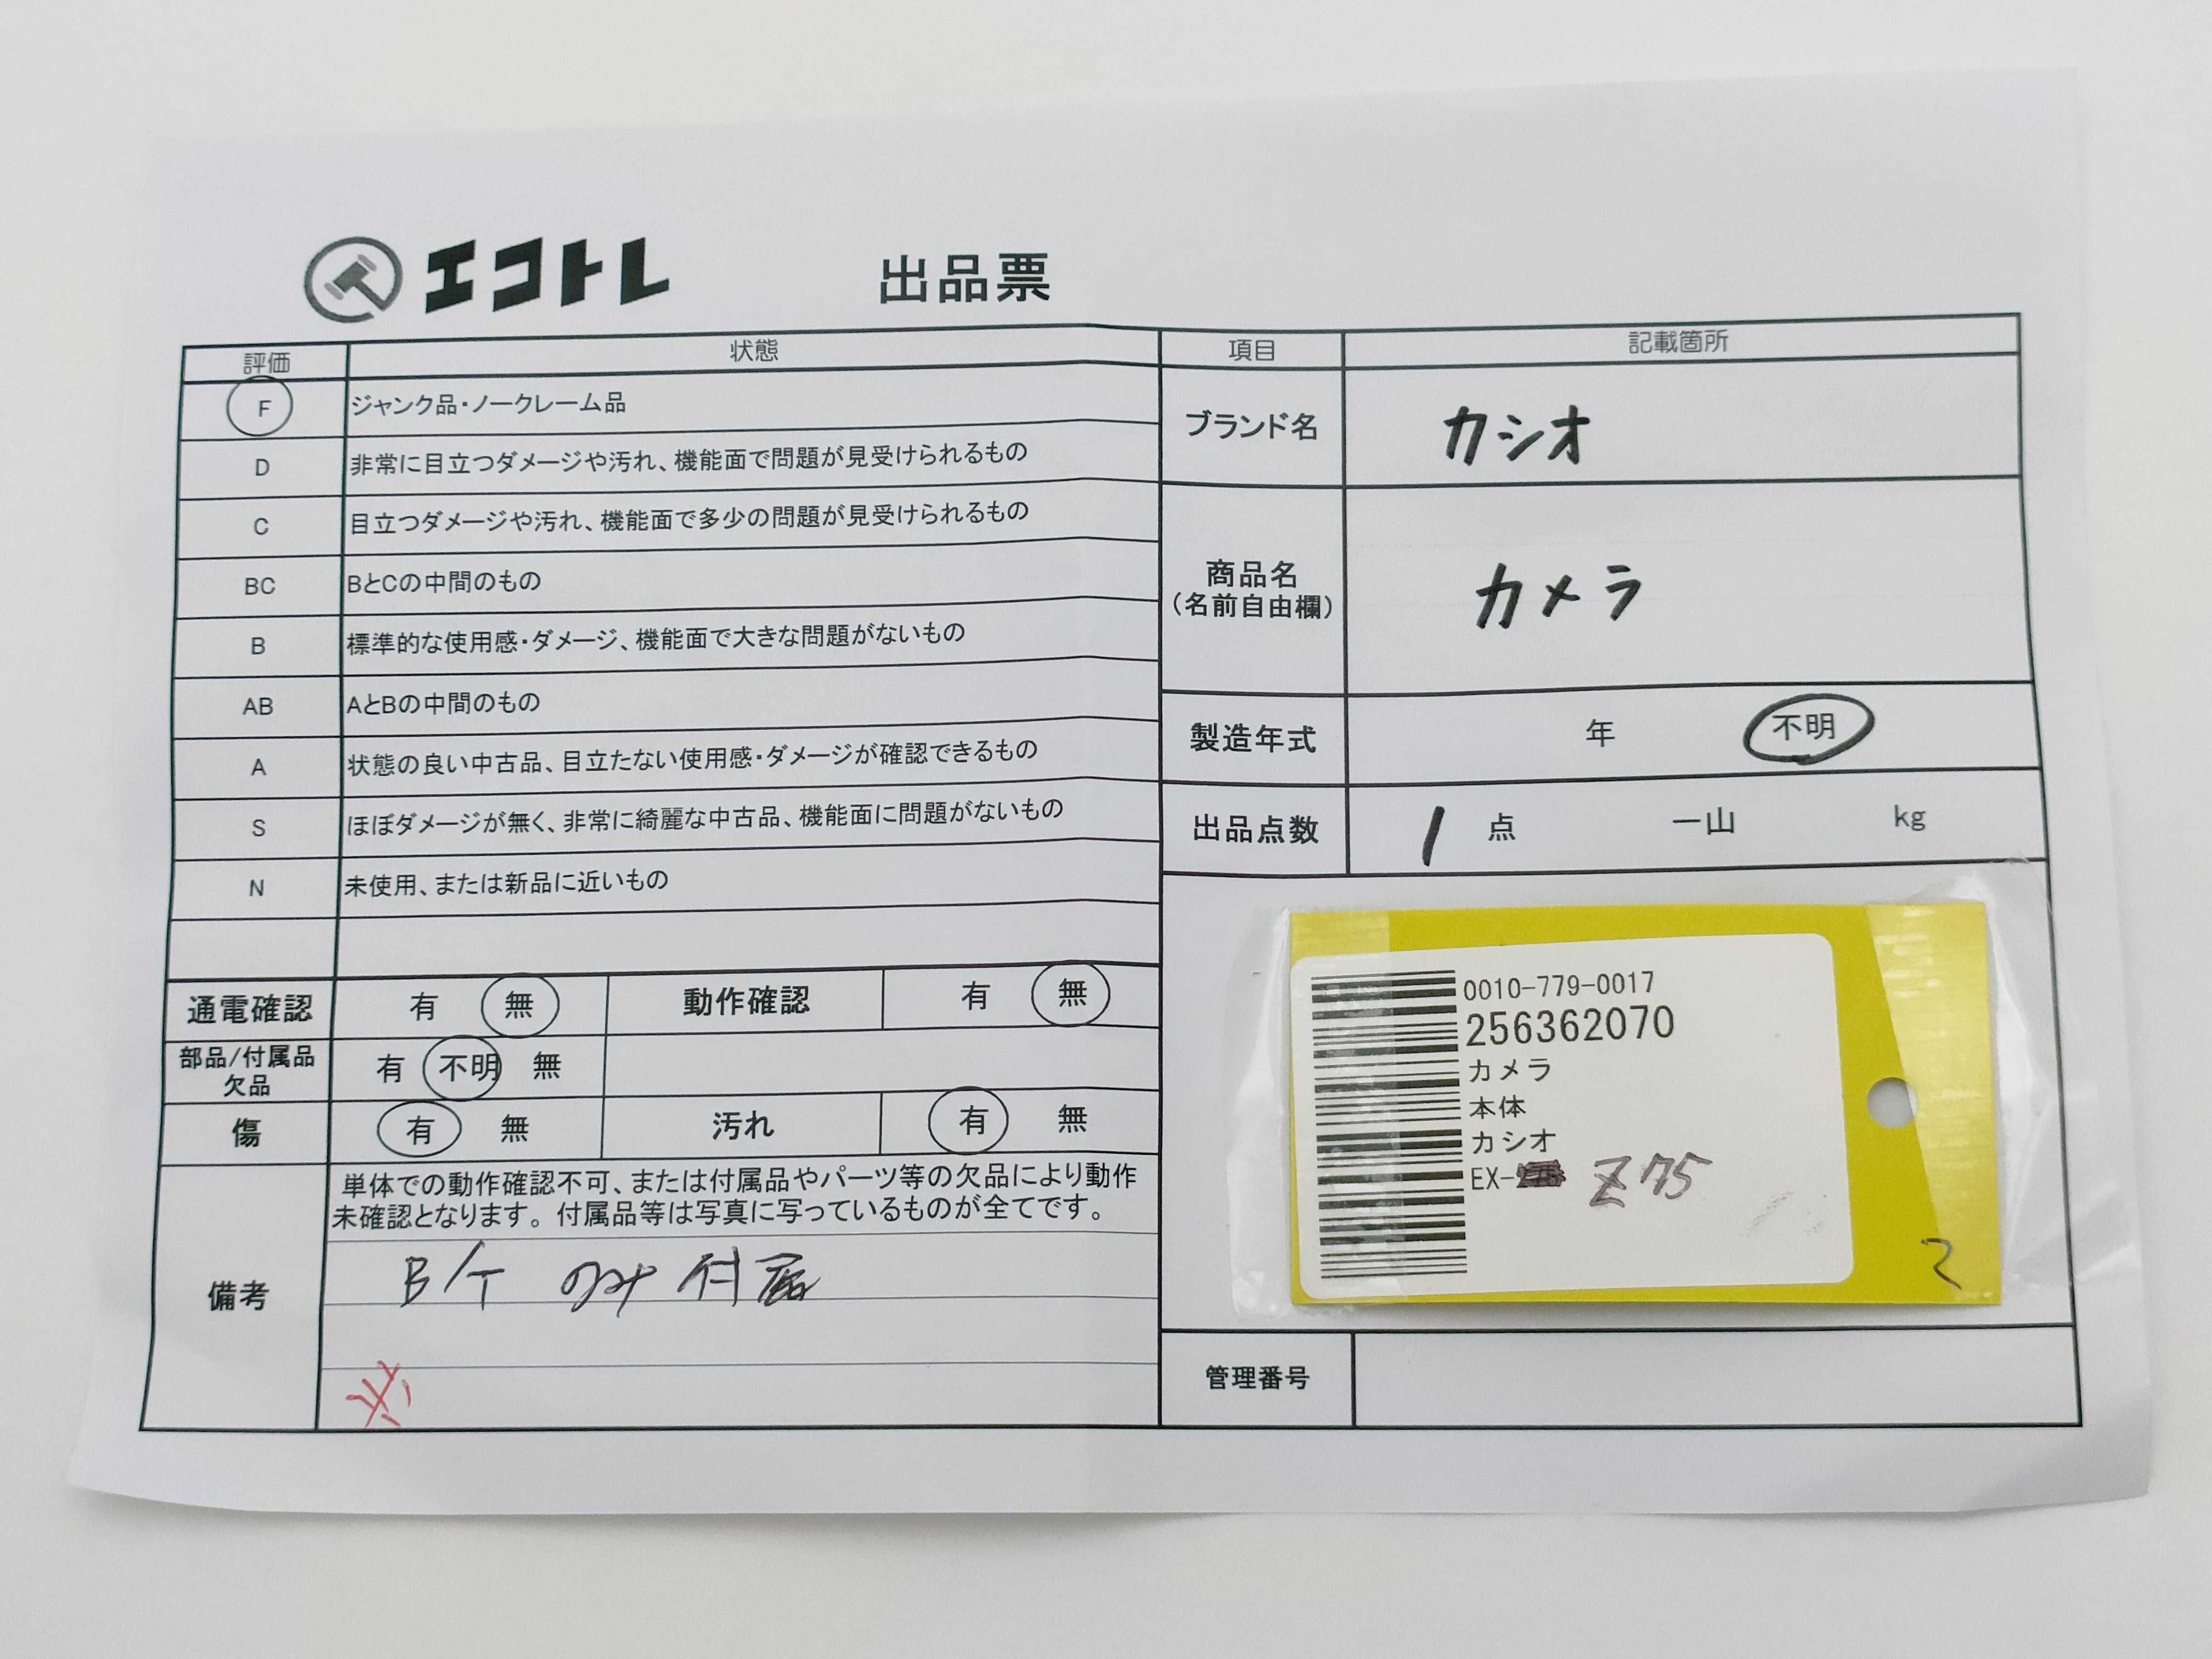 エコトレ
出品票
評価 状態
F ジャンク品・ノークレーム品
D 非常に目立つダメージや汚れ、機能面で問題が見受けられるもの
C 目立つダメージや汚れ、機能面で多少の問題が見受けられるもの
BC BとCの中間のもの
B 標準的な使用感・ダメージ、機能面で大きな問題がないもの
AB AとBの中間のもの
A 状態の良い中古品、目立たない使用感・ダメージが確認できるもの
S ほぼダメージが無く、非常に綺麗な中古品、機能面に問題がないもの
N 未使用、または新品に近いもの
通電確認 有 無 動作確認 有 無
部品/付属品
欠品 有 不明 無
傷 有 無 汚れ 有 無
備考
単体での動作確認不可、または付属品やパーツ等の欠品により動作
未確認となります。付属品等は写真に写っているものが全てです。
B/T のみ付属
項目 記載箇所
ブランド名 カシオ
商品名
(名前自由欄) カメラ
製造年式 年 不明
出品点数 1 点 一山 kg
0010-779-0017
256362070
カメラ
本体
カシオ
EX- Z75
2
管理番号